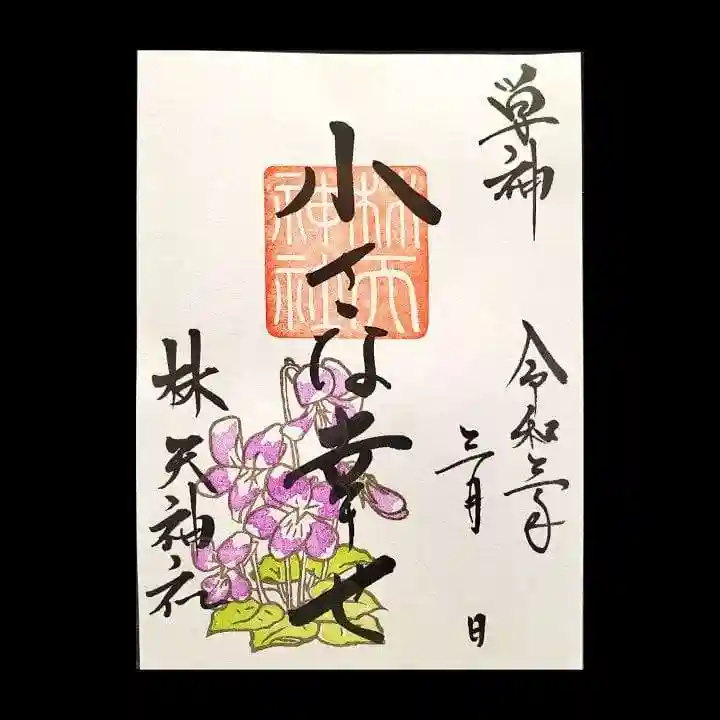 令和三年
三月 日
小さな幸せ
林天
神社
林天神社